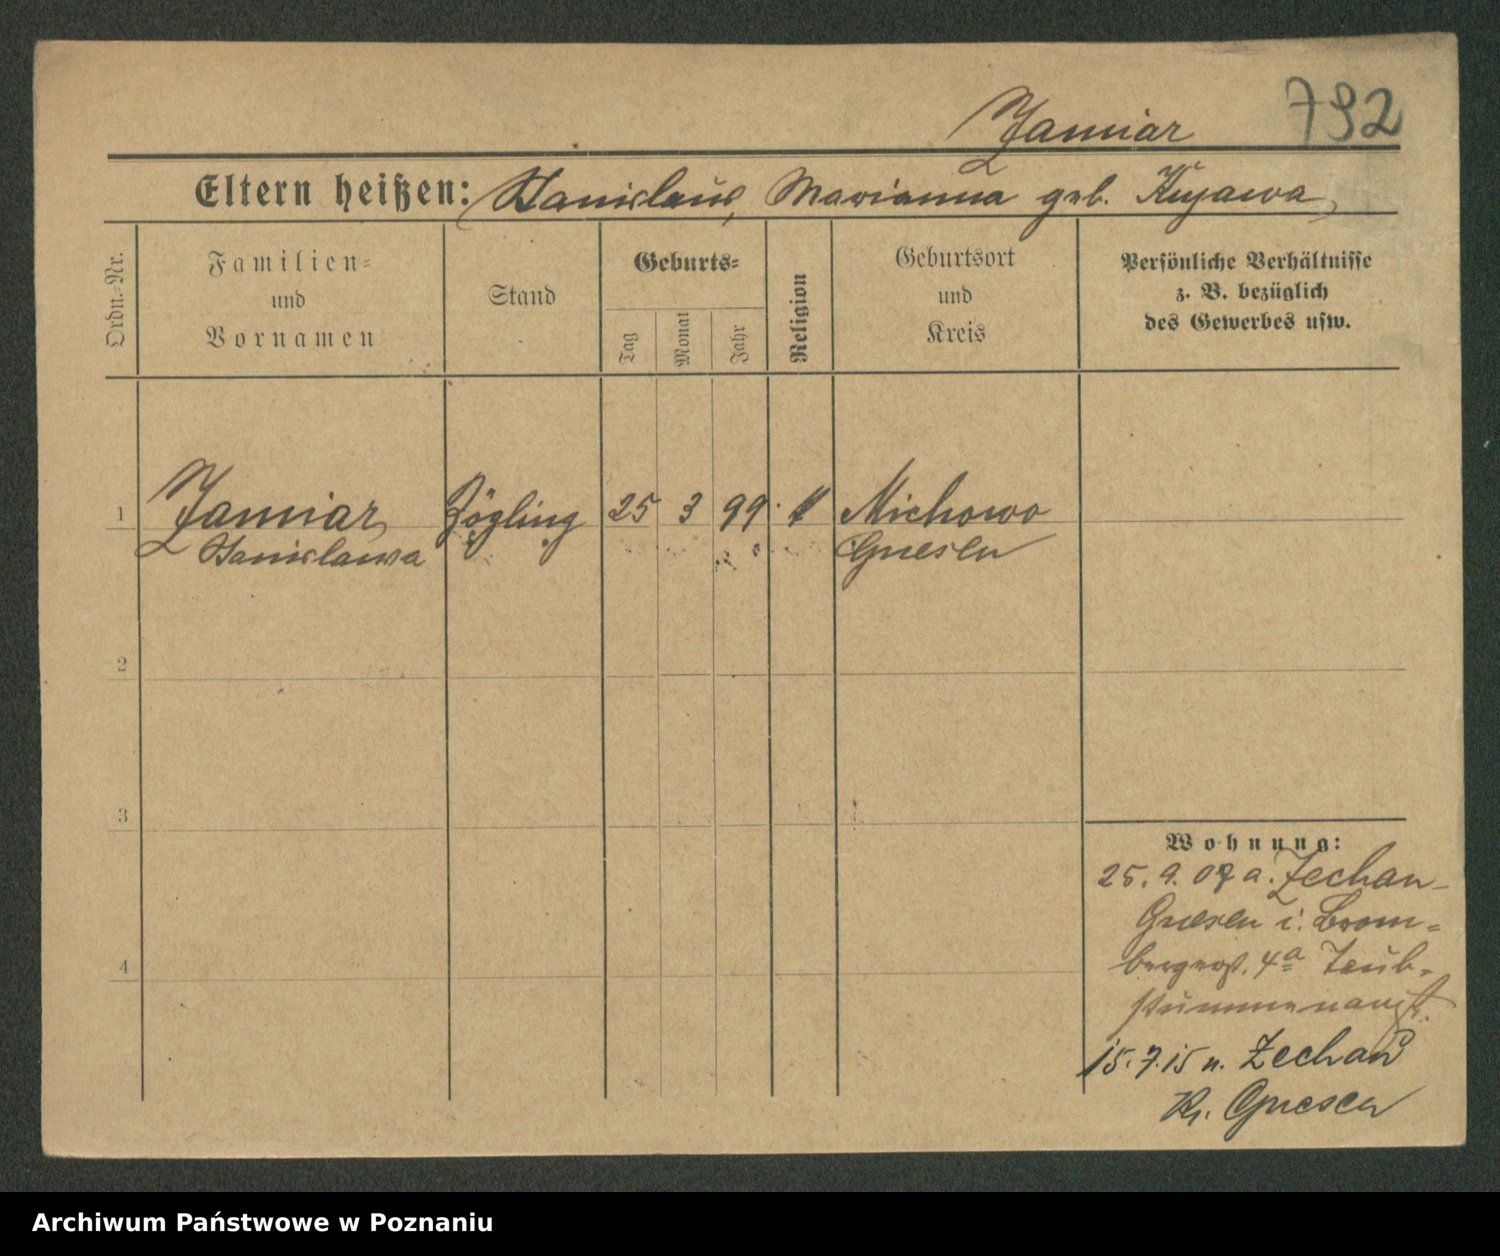 792
Januiar
Eltern heißen: Stanislaus, Marianna geb. Kujawa,
Ordn.-Nr.
Familien-
und
Vornamen
Stand
Geburts-
Tag
Monat
Jahr
Religion
Geburtsort
und
Kreis
Persönliche Verhältnisse
z. B. bezüglich
des Gewerbes usw.
1 Januiar, Zögling 25 3 99 Michowo
Stanislawa Gnesen
2
3
4
Wohnung:
25. 9. 07 a. Zechau-
Gnesen i. Brom-
bergerst. 4a Taub-
stummenanst.
15. 7. 15 n. Zechau
Kr. Gnesen
Archiwum Państwowe w Poznaniu